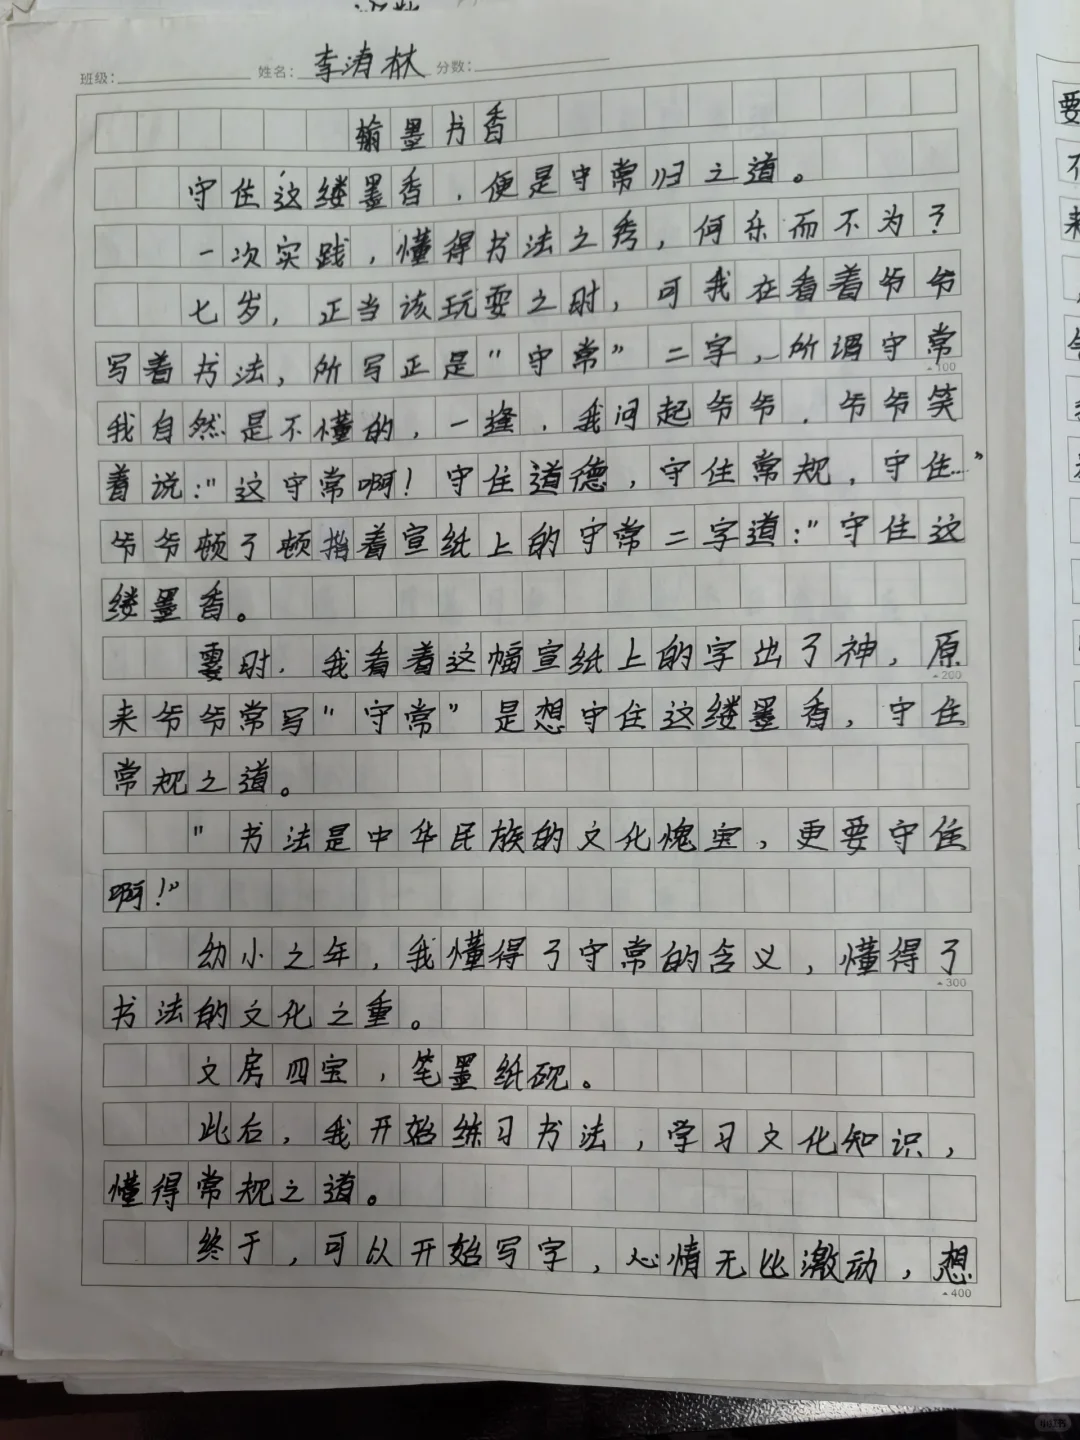 班级： 姓名：李涛林 分数：
翰墨书香
守住这缕墨香，便是守常归之道。
一次实践，懂得书法之秀，何乐而不为？
七岁，正当该玩耍之时，可我在看着爷爷
写着书法，所写正是"守常"二字，所谓守常
▲100
我自然是不懂的，一缝，我问起爷爷，爷爷笑
着说："这守常啊！守住道德，守住常规，守住……"
爷爷顿了顿指着宣纸上的守常二字道："守住这
缕墨香。
霎时，我看着这幅宣纸上的字出了神，原
▲200
来爷爷常写"守常"是想守住这缕墨香，守住
常规之道。
"书法是中华民族的文化瑰宝，更要守住
啊！"
幼小之年，我懂得了守常的含义，懂得了
▲300
书法的文化之重。
文房四宝，笔墨纸砚。
此后，我开始练习书法，学习文化知识，
懂得常规之道。
终于，可以开始写字，心情无比激动，想
▲400
要
小红书